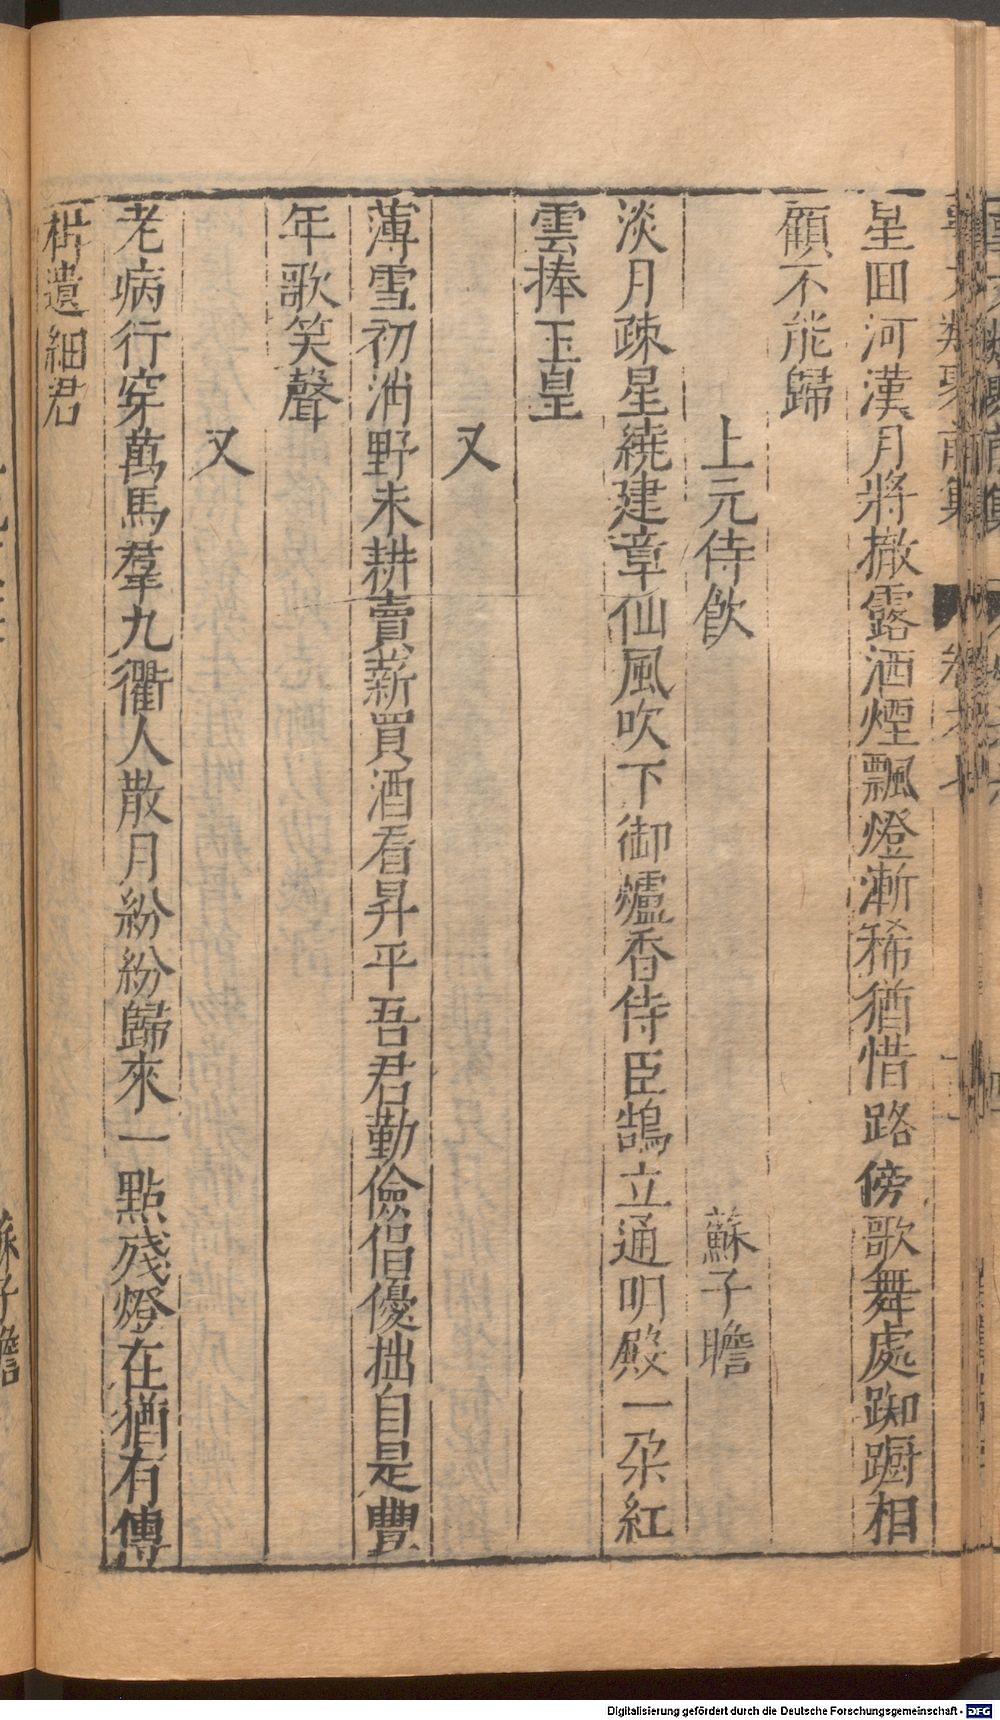 星回河漢月將撤露洒煙飄燈漸稀猶惜路傍歌舞處踟躕相
顧不能歸
上元侍飲　蘇子瞻
淡月疎星繞建章仙風吹下御爐香侍臣鵠立通明殿一朶紅
雲捧玉皇
又
薄雪初消野未耕賣薪買酒看昇平吾君勤儉倡優拙自是豐
年歌笑聲
又
老病行穿萬馬羣九衢人散月紛紛歸來一點殘燈在猶有傳
柑遺細君
蘇子瞻
Digitalisierung gefördert durch die Deutsche Forschungsgemeinschaft - DFG